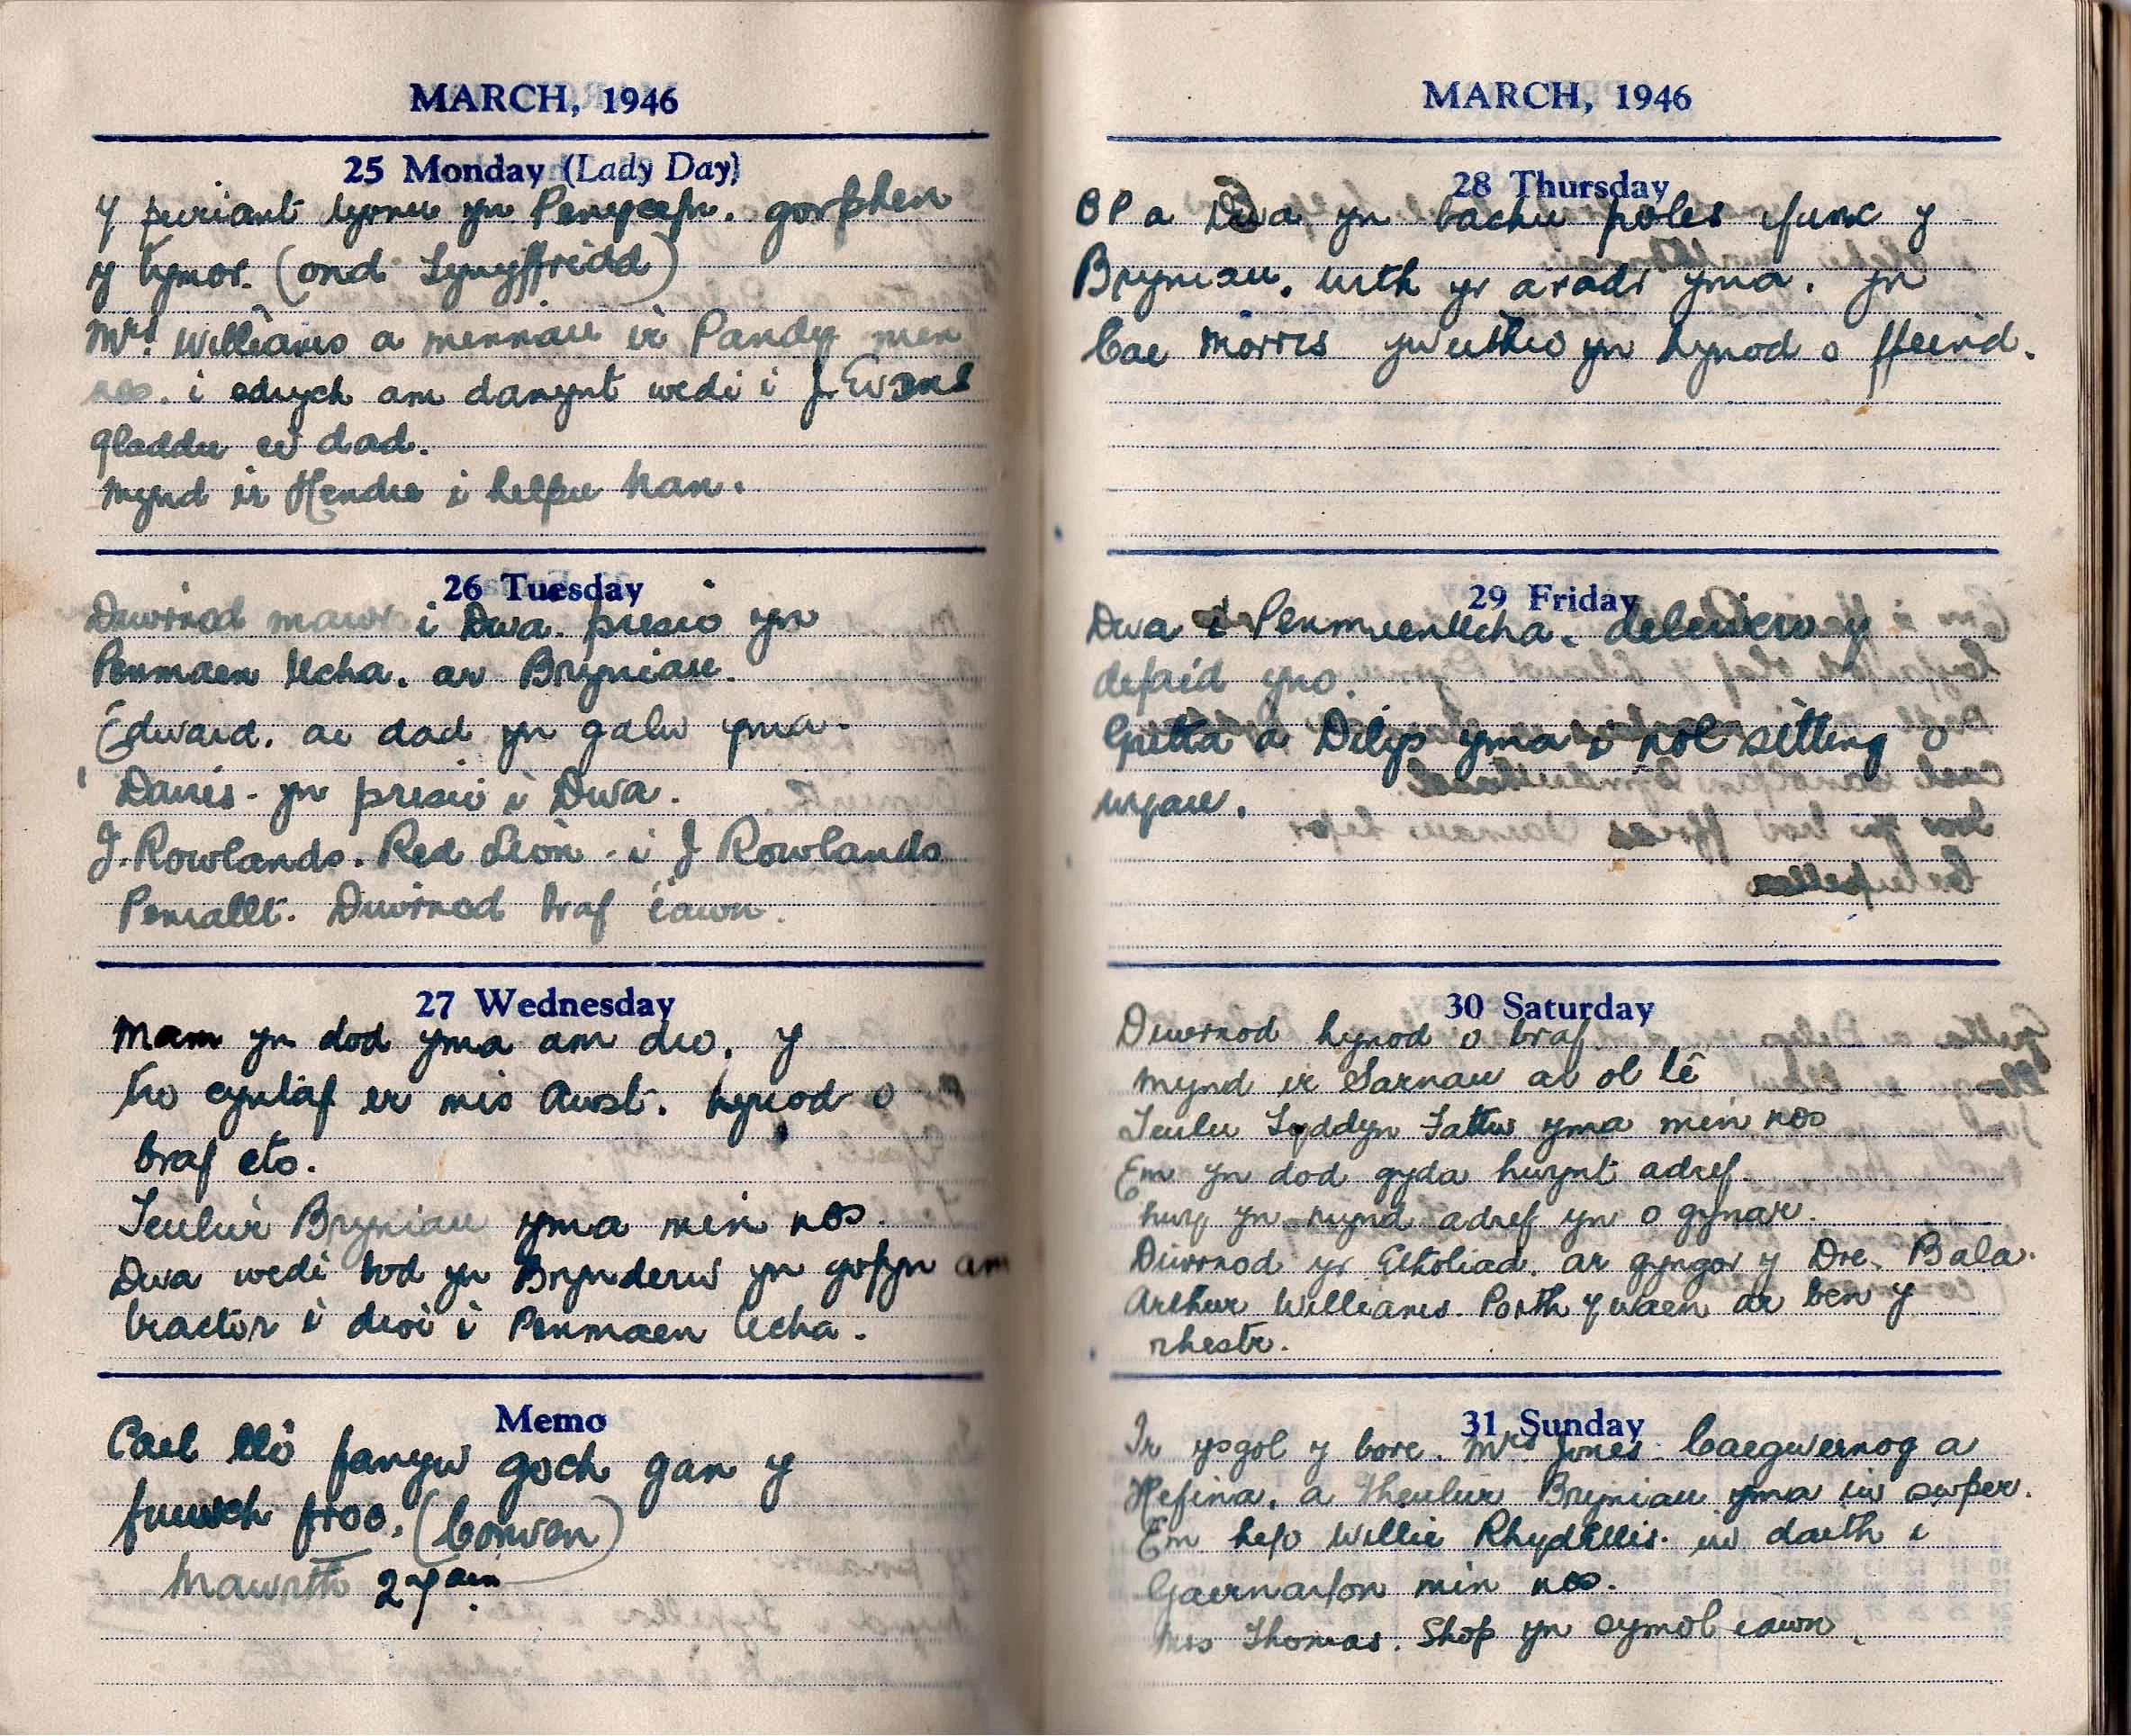 MARCH, 1946
25 Monday (Lady Day)
Y peiriant dyrnu yn Penycefn. gorphen
y tymor. (ond Tynyffridd)
Mrs. Williams a minnau ir Pandy min
nos. i edrych am danynt wedi i J. Evans
gladdu ei dad.
Mynd ir Hendre i helpu Nan.
26 Tuesday
Diwrnod mawr i Dwa. presio yn
Penmaen Ucha. ar Bryniau.
Edward. ai dad yn galw yma.
Davies. yn presio i Dwa.
J. Rowlands. Red Lion. i J Rowlands
Penrallt. Diwrnod braf iawn.
27 Wednesday
Mam yn dod yma am dro. y
tro cyntaf er mis Awst. hynod o
braf eto.
Teulu'r Bryniau yma min nos.
Dwa wedi bod yn Brynderw yn gofyn am
tractor i droi i Penmaen Ucha.
Memo
Cael llo fanyw goch gan y
fuwch froc. (Corwen)
Mawrth 2 7ain
MARCH, 1946
28 Thursday
B P a Dwa yn bachu poles ifune y
Bryniau. with yr aradr yma. yn
Cae Morris yweithio yn hynod o ffeind.
29 Friday
Dwa i Penmaenucha. deleivero y
defaid yno.
Gretta a Dilys yma i nol sitting o
wyau.
30 Saturday
Diwrnod hynod o braf.
Mynd ir Sarnau ar ol tê
Teulu Tyddyn Tattw yma min nos
Em yn dod gyda hwynt adref.
hwy yn mynd adref yn o gynar.
Diwrnod yr Etholiad. ar gyngor y Dre. Bala.
Arthur Williams. Porth y waen ar ben y
rhestr.
31 Sunday
Ir ysgol y bore. Mrs Jones. Caegwernog a
Hefina. a theulur Bryniau yma iw swper.
Em hefo Willie Rhyd iw daith i
Gaernarfon min nos.
Mrs Thomas. Shop yn symol iawn.